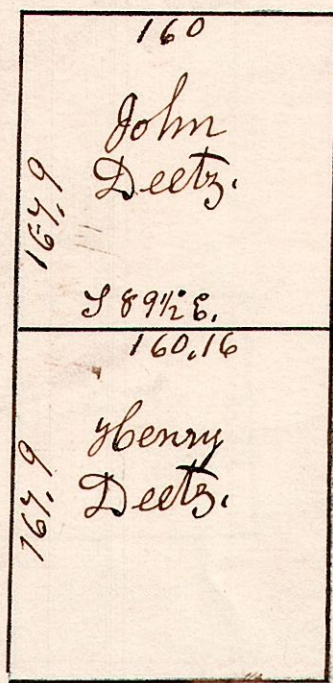 160
John
Deetz.
167,9
S 89½ E.
160,16
Henry
Deetz.
167,9